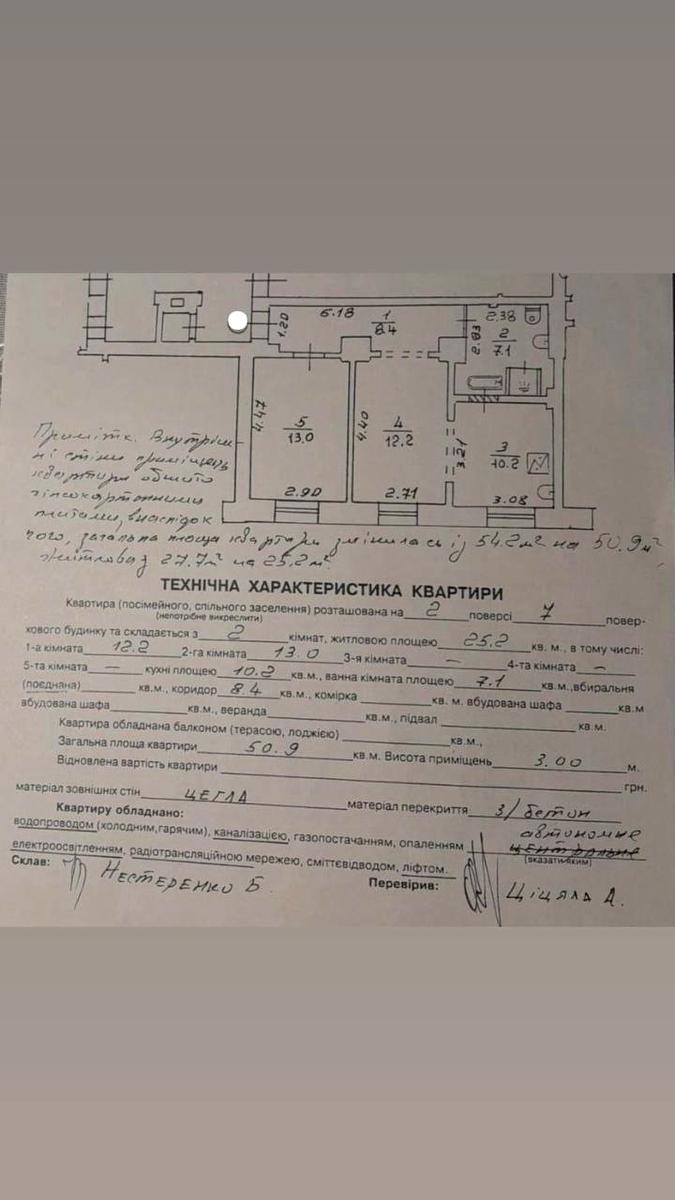 6.18
1
8.4
1.20
2.38
2.83
2
7.1
4.47
5
13.0
2.90
4.40
4
12.2
2.71
3.21
3
10.2
3.08
Примітк. Внутріш-
ні стіни приміщень
квартири обшито
гіпсокартонними
плитами, внаслідок
чого, загальна площа квартири змінилась із 54.2м² на 50.9м²,
житлова з 27.7м² на 25.2м².
ТЕХНІЧНА ХАРАКТЕРИСТИКА КВАРТИРИ
Квартира (посімейного, спільного заселення) розташована на 2 поверсі 7 повер-
(непотрібне викреслити)
хового будинку та складається з 2 кімнат, житловою площею 25.2 кв. м., в тому числі:
1-а кімната 12.2 2-га кімната 13.0 3-я кімната — 4-та кімната —
5-та кімната — кухні площею 10.2 кв.м., ванна кімната площею 7.1 кв.м.,вбиральня
(поєднана) кв.м., коридор 8.4 кв.м., комірка кв. м. вбудована шафа кв.м
вбудована шафа кв.м., веранда кв.м., підвал кв.м.
Квартира обладнана балконом (терасою, лоджією) кв.м.,
Загальна площа квартири 50.9 кв.м. Висота приміщень 3.00 м.
Відновлена вартість квартири грн.
матеріал зовнішніх стін ЦЕГЛА матеріал перекриття з/бетон
Квартиру обладнано: автономне
водопроводом (холодним,гарячим), каналізацією, газопостачанням, опаленням центральне
(вказати яким)
електроосвітленням, радіотрансляційною мережею, сміттєвідводом, ліфтом.
Склав: НЕСТЕРЕНКО Б. Перевірив: ЦІЦЯЛА А.